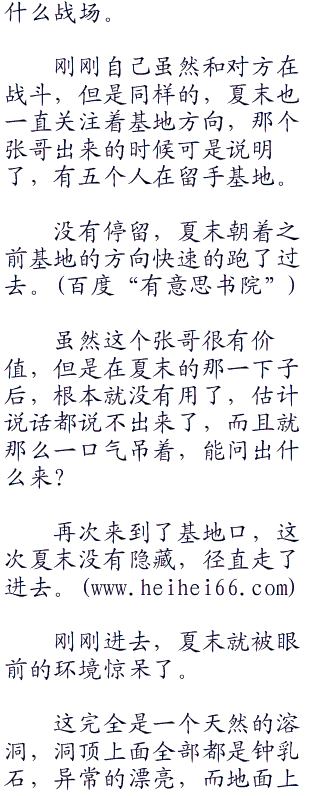 什么战场。
刚刚自己虽然和对方在
战斗，但是同样的，夏末也
一直关注着基地方向，那个
张哥出来的时候可是说明
了，有五个人在留手基地。
没有停留，夏末朝着之
前基地的方向快速的跑了过
去。(百度“有意思书院”)
虽然这个张哥很有价
值，但是在夏末的那一下子
后，根本就没有用了，估计
说话都说不出来了，而且就
那么一口气吊着，能问出什
么来？
再次来到了基地口，这
次夏末没有隐藏，径直走了
进去。(www.heihei66.com)
刚刚进去，夏末就被眼
前的环境惊呆了。
这完全是一个天然的溶
洞，洞顶上面全部都是钟乳
石，异常的漂亮，而地面上